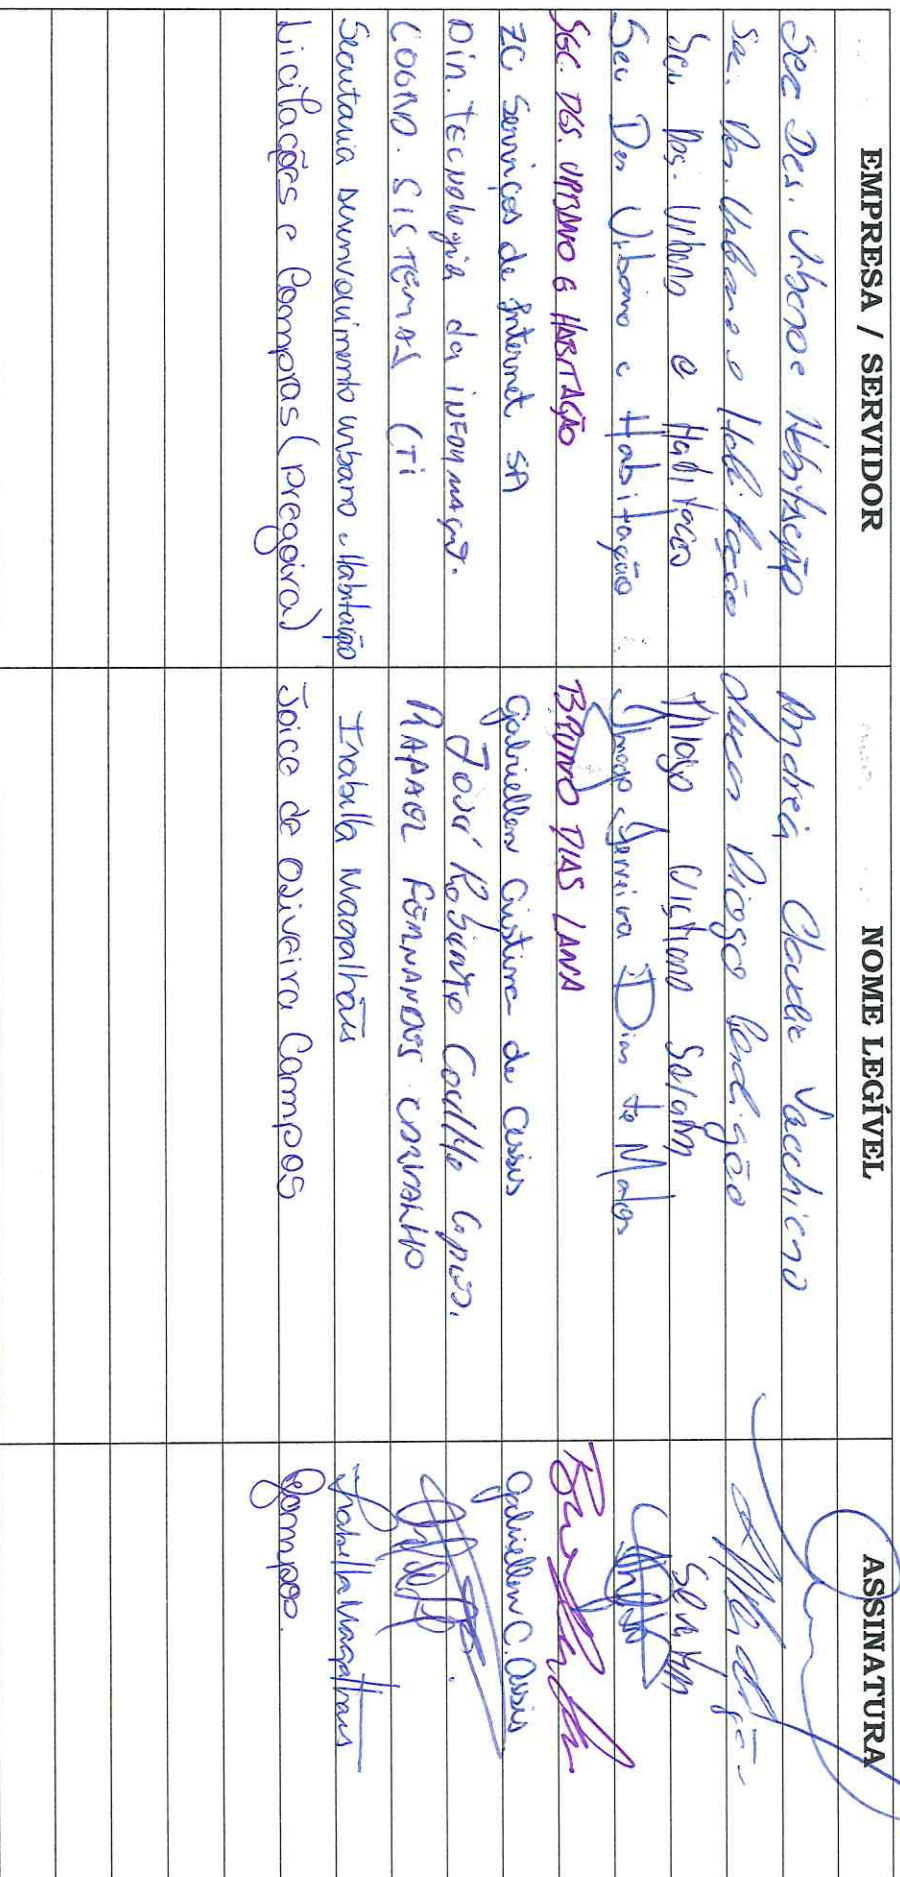 EMPRESA / SERVIDOR NOME LEGÍVEL ASSINATURA
Sec Des. Urbano e Habitação Andreia Claudia Vacchiano
Sec. Des. Urbano e Habitação Lucas Diogo Perdigão
Sec. Des. Urbano e Habitação Thiago Solano
Sec Des Urbano e Habitação Ferreira Dias de Matos
SEC. DES. URBANO E HABITAÇÃO BRUNO DIAS LANA
ZC Serviços de Internet SA Gabriellen Cristina de Assis Gabriellen C. Assis
Dir. Tecnologia da informação. José Roberto Coelho
COORD. SISTEMAS CTI RAFAEL FERNANDES CARVALHO
Secretaria Desenvolvimento urbano e Habitação Isabella Magalhães Isabella Magalhães
Licitações e Compras (pregoeira) Joice de Oliveira Campos Campos